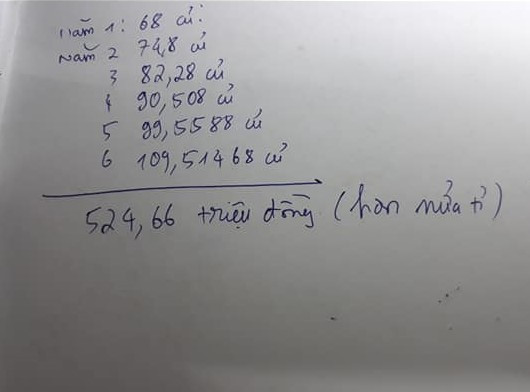 Năm 1: 68 củ
Năm 2 74,8 củ
3 82,28 củ
4 90,508 củ
5 99,5588 củ
6 109,51468 củ
524,66 triệu đồng (hơn nửa tỉ)